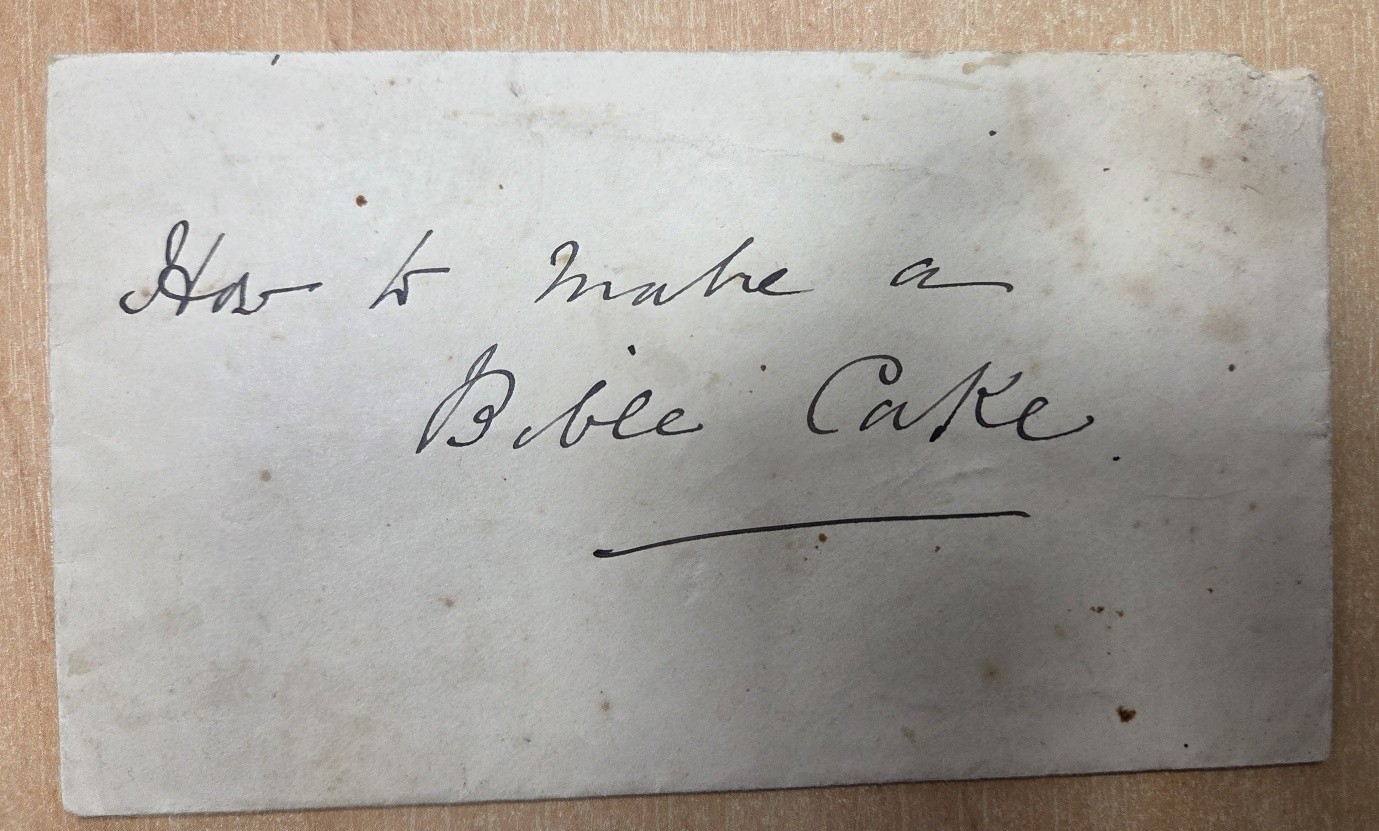 How to make a
Bible Cake.